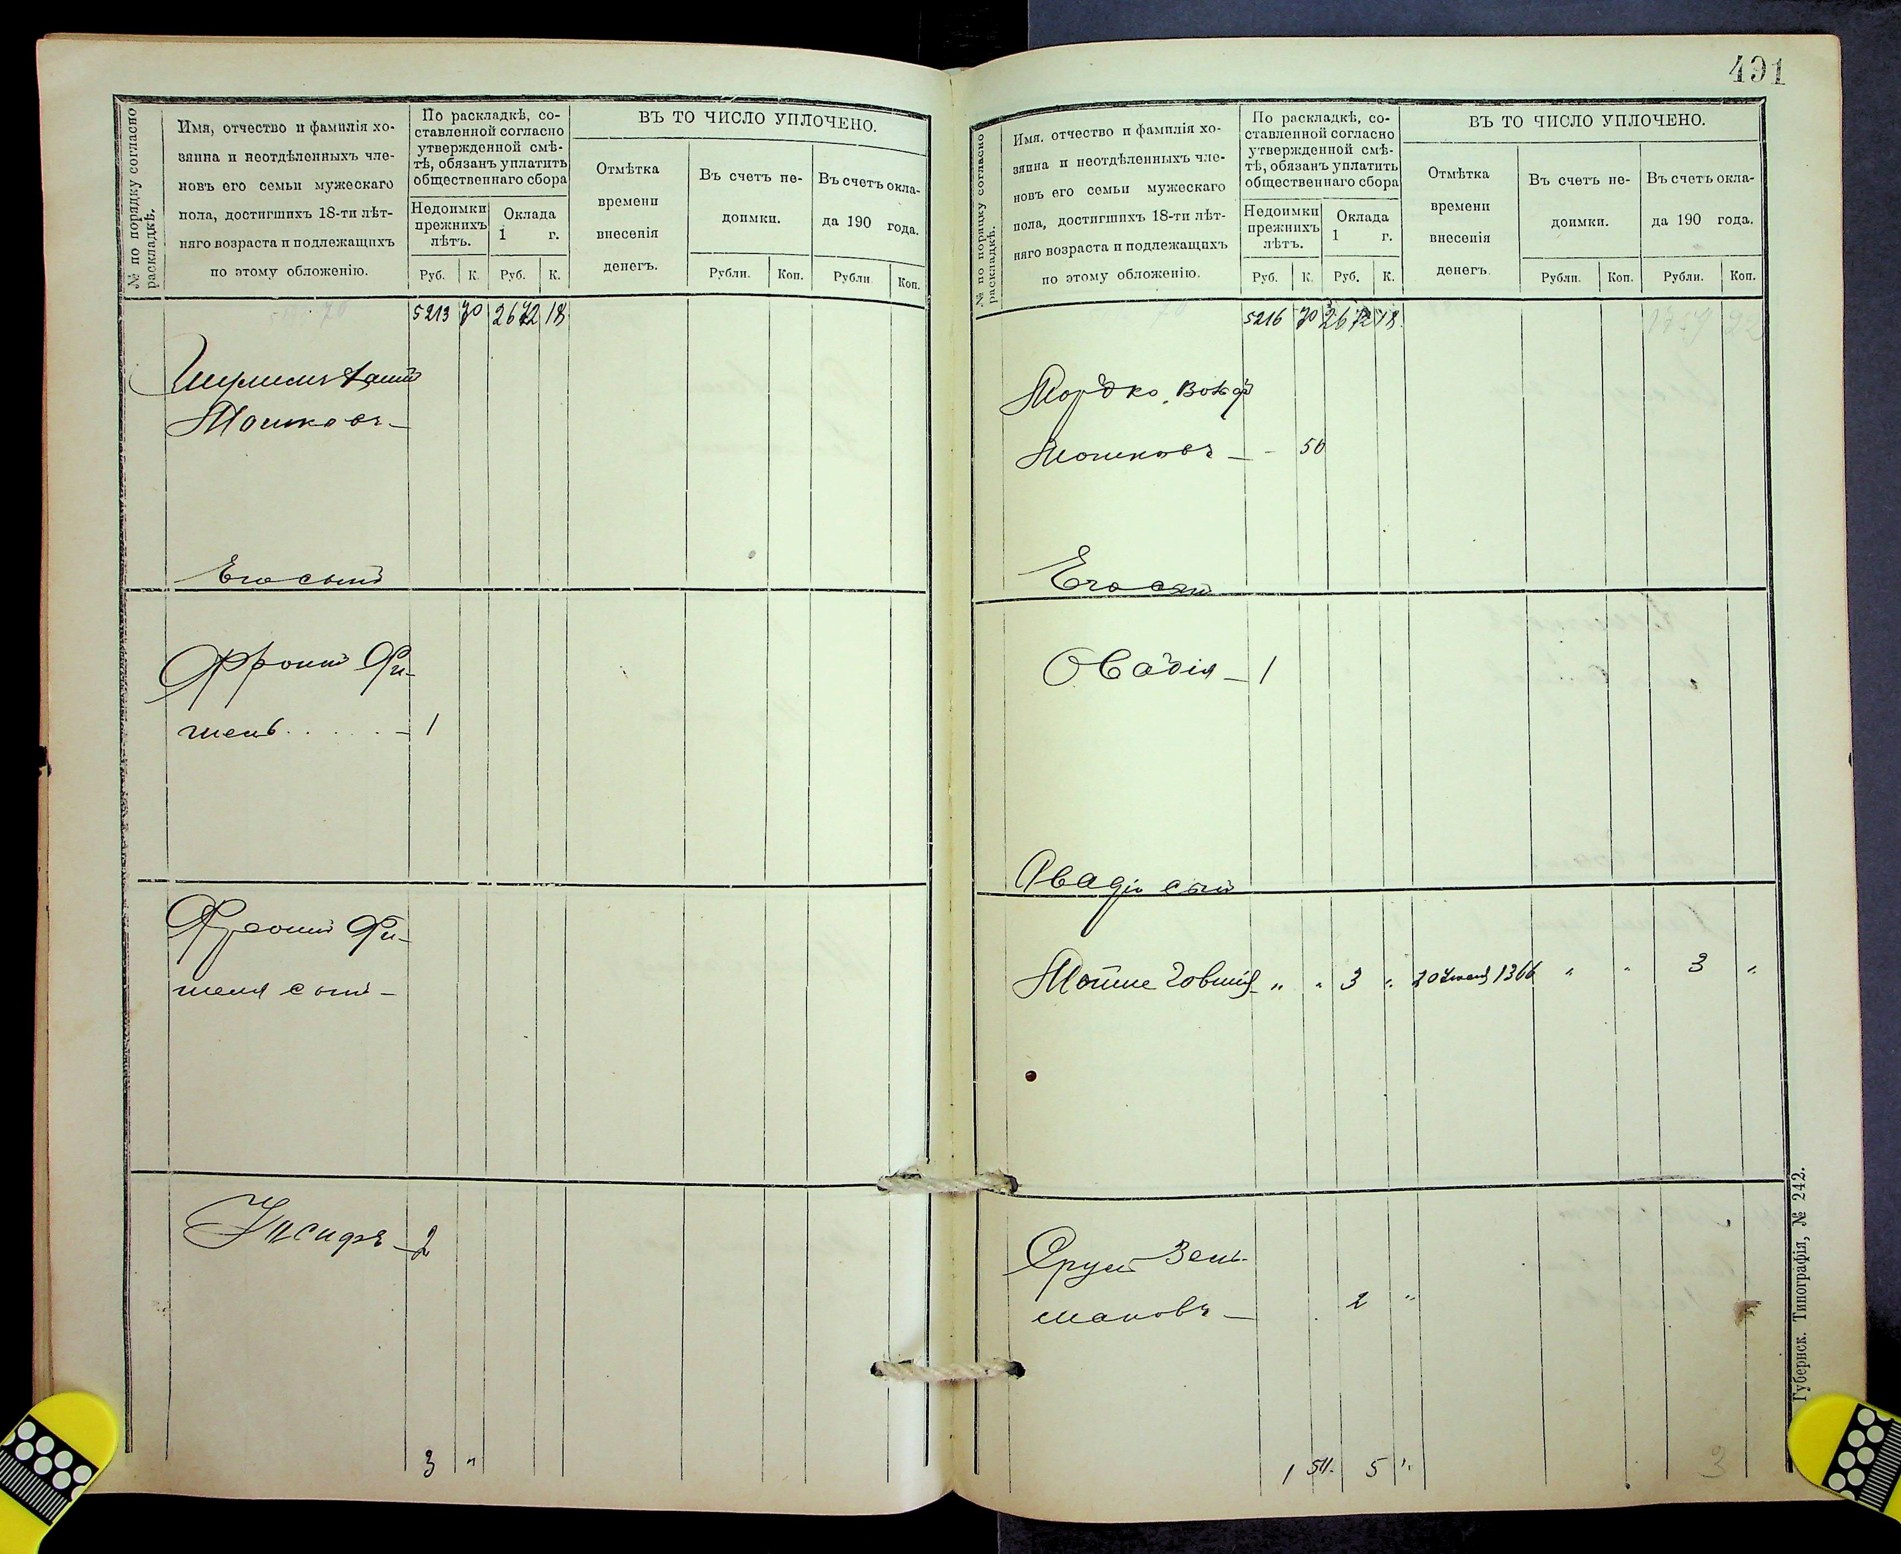 № по порядку согласно
раскладкѣ.
Имя, отчество и фамилія хо-
зяина и неотдѣленныхъ чле-
новъ его семьи мужескаго
пола, достигшихъ 18-ти лѣт-
няго возраста и подлежащихъ
по этому обложенію.
По раскладкѣ, со-
ставленной согласно
утвержденной смѣ-
тѣ, обязанъ уплатить
общественнаго сбора
Недоимки
прежнихъ
лѣтъ.
Оклада
1 г.
Руб. К. Руб. К.
ВЪ ТО ЧИСЛО УПЛОЧЕНО.
Отмѣтка
времени
внесенія
денегъ.
Въ счетъ не-
доимки.
Рубли. Коп.
Въ счетъ окла-
да 190 года.
Рубли Коп.
5213 70 2672 18
Мошковъ
Его сынъ
Фроимъ Фи-
шель . . . . . 1
Фроимъ Фи-
шеля сынъ
2
3 "
491
№ по порядку согласно
раскладкѣ.
Имя, отчество и фамилія хо-
зяина и неотдѣленныхъ чле-
новъ его семьи мужескаго
пола, достигшихъ 18-ти лѣт-
няго возраста и подлежащихъ
по этому обложенію.
По раскладкѣ, со-
ставленной согласно
утвержденной смѣ-
тѣ, обязанъ уплатить
общественнаго сбора
Недоимки
прежнихъ
лѣтъ.
Оклада
1 г.
Руб. К. Руб. К.
ВЪ ТО ЧИСЛО УПЛОЧЕНО.
Отмѣтка
времени
внесенія
денегъ.
Въ счетъ не-
доимки.
Рубли. Коп.
Въ счетъ окла-
да 190 года.
Рубли. Коп.
5216 70 2672 18
Мордко Вольф
Мошковъ - 50
Его сынъ
Овадія 1
Авадія сынъ
Мойше " " 3 " 20 1366 " " 3 "
Сруль Зель-
мановъ 2 "
1 50 5 "
3
Губернск. Типографія, № 242.